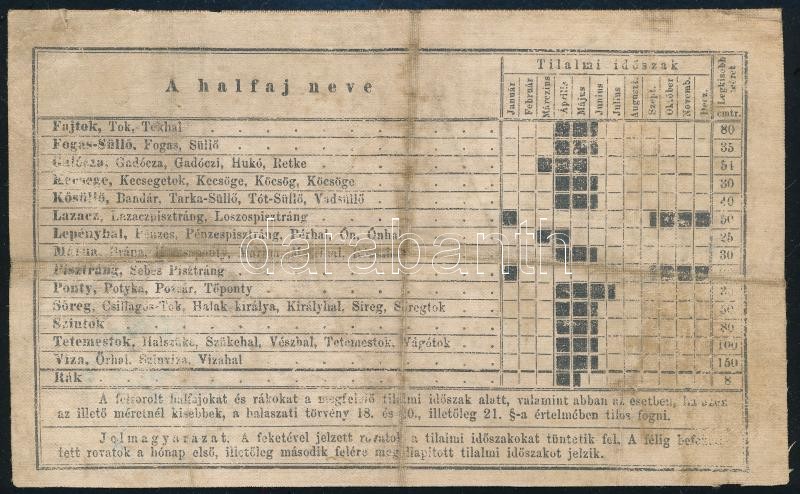 A halfaj neve
Tilalmi időszak
Legkisebb méret
Január Február Márczius Április Május Junius Julius August. Szept. Október Novemb. Decz. cmtr.
Fajtok, Tok, Tokhal 80
Fogas-Süllő, Fogas, Süllő 35
Galócza, Gadócza, Gadóczi, Hukó, Retke
Kecsege, Kecsegetok, Kecsöge, Köcsög, Köcsöge 30
Kősüllő, Bandár, Tarka-Süllő, Tót-Süllő, Vadsüllő 40
Lazacz, Lazaczpisztráng, Loszospisztráng 50
Lepényhal, Pénzes, Pénzespisztráng, Pérhal, Ön, Önhal 25
Márna, 30
Pisztráng, Sebes Pisztráng
Ponty, Potyka, Pozsár, Tőponty
Sőreg, Csillagos-Tok, Halak-királya, Királyhal, Sireg, Söregtok
Szintok 80
Tetemestok, Halszüke, Szükehal, Vészhal, Tetemestok, Vágótok 100
Viza, Őrhal, Szinviza, Vizahal 150
Rák 8
A felsorolt halfajokat és rákokat a megfelelő tilalmi időszak alatt, valamint abban az esetben,
az illető méretnél kisebbek, a halaszati törvény 18. és 20., illetőleg 21. §-a értelmében tilos fogni.
Jelmagyarázat. A feketével jelzett rovatok a tilalmi időszakokat tüntetik fel. A félig
tett rovatok a hónap első, illetőleg második felére megállapitott tilalmi időszakot jelzik.
darabanth